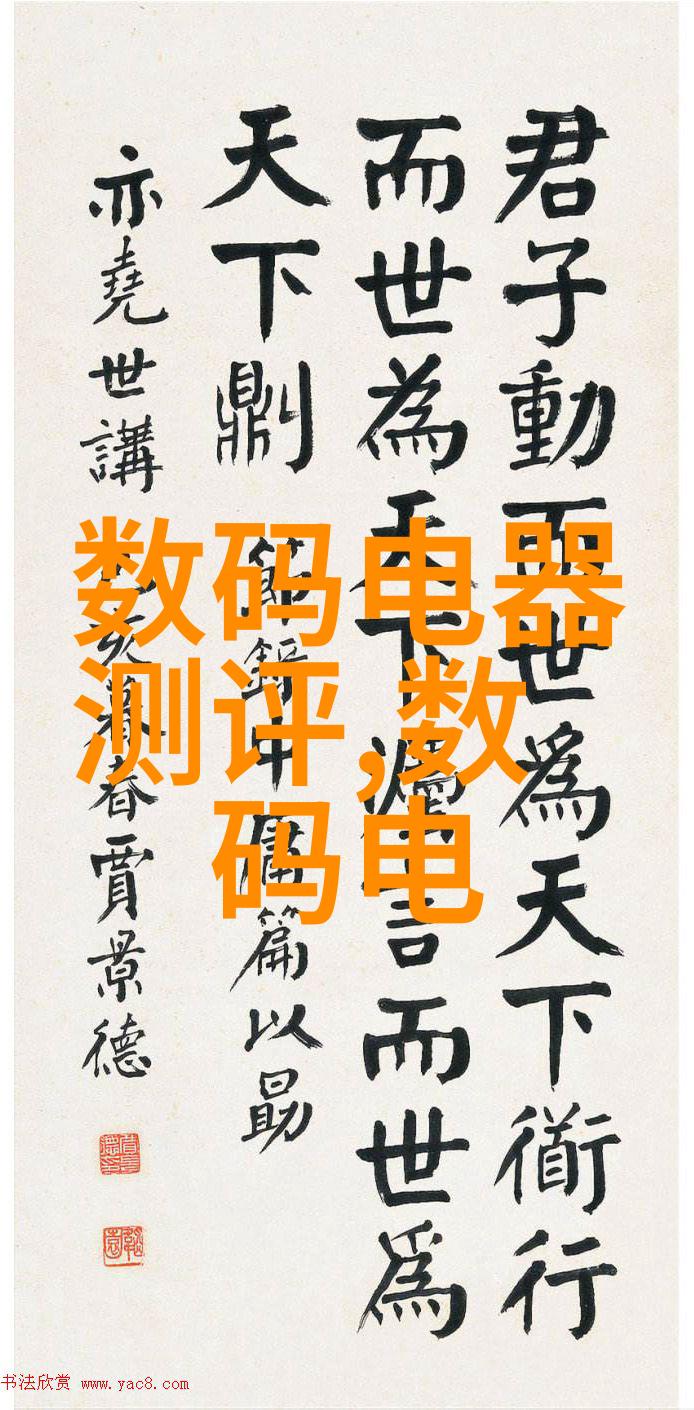 君子動而世為天下衜行
而世為天下灋言而世為
天下𠞋
節錄中庸篇以勗
亦堯世講 亥暮春賈景德
数码电器
测评,数
码电
书法欣赏 www.yac8.com